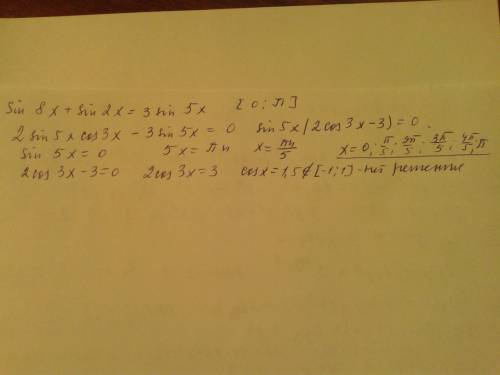 Sin 8x + sin 2x = 3 sin 5x [0; π]
2 sin 5x cos 3x - 3 sin 5x = 0 sin 5x (2cos 3x - 3) = 0.
Sin 5x = 0 5x = πn x = πn/5 x = 0; π/5; 2π/5; 3π/5; 4π/5; π
2cos 3x - 3 = 0 2cos 3x = 3 cos x = 1,5 ∉ [-1; 1] - нет решения